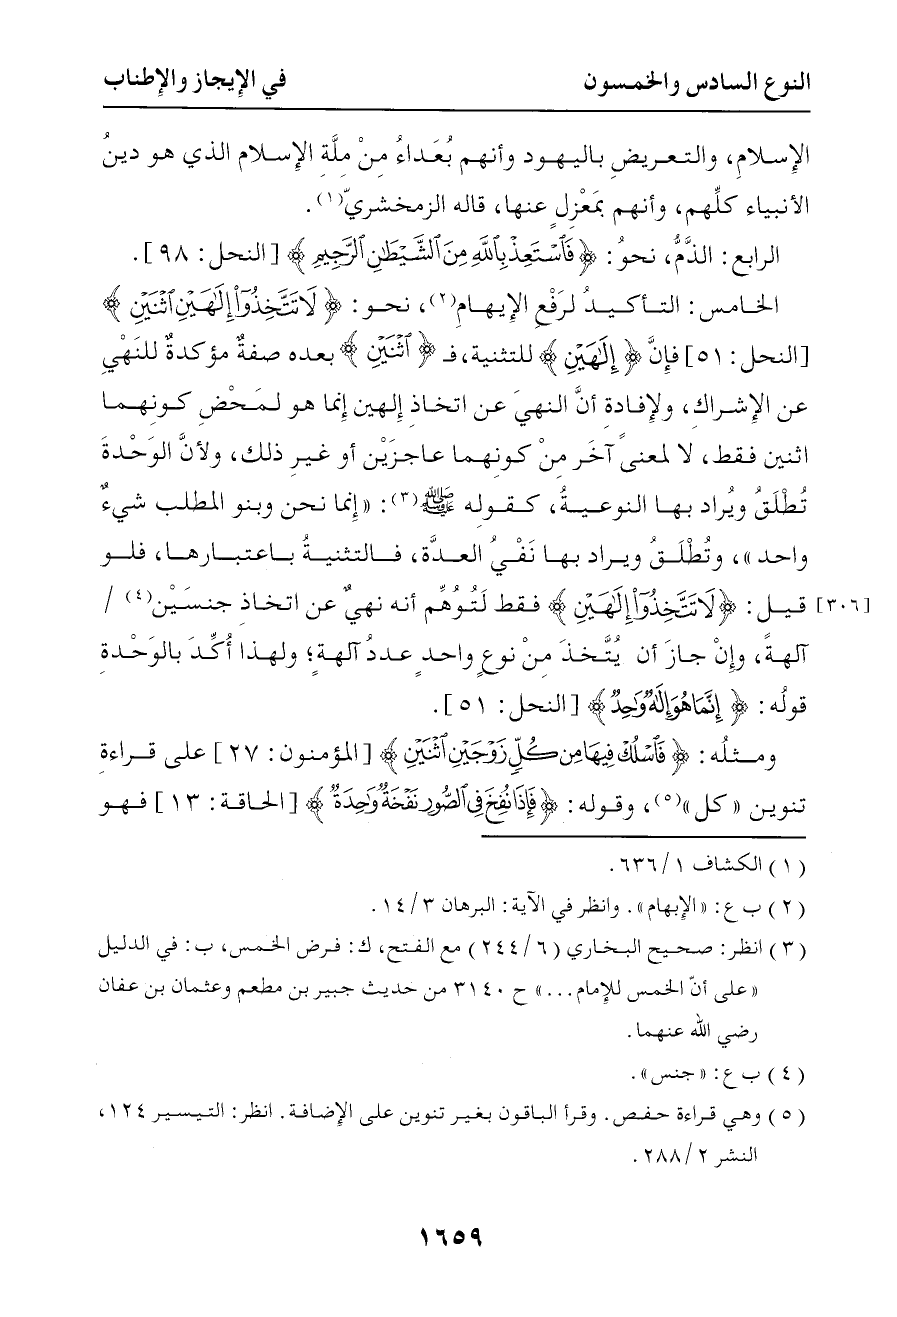 النوع السادس والخمسون في الإيجاز والإطناب
الإسلام، والتعريضِ باليهود وأنهم بُعَداءُ مِنْ مِلَّةِ الإسلام الذي هو دينُ
الأنبياء كلِّهم، وأنهم بمَعْزِلٍ عنها، قاله الزمخشريّ(١).
الرابع: الذَّمُّ، نحوُ: ﴿فَاسْتَعِذْ بِاللَّهِ مِنَ الشَّيْطَانِ الرَّجِيمِ﴾ [النحل: ٩٨].
الخامس: التأكيدُ لرَفْعِ الإيهامِ(٢)، نحو: ﴿لَا تَتَّخِذُوا إِلَٰهَيْنِ اثْنَيْنِ﴾
[النحل: ٥١] فإنَّ ﴿إِلَٰهَيْنِ﴾ للتثنية، فـ ﴿اثْنَيْنِ﴾ بعده صفةٌ مؤكدةٌ للنَهْيِ
عن الإشراك، ولإفادة أنَّ النهيَ عن اتخاذ إلهين إنما هو لمَحْضِ كونهما
اثنين فقط، لا لمعنىً آخَر مِنْ كونهما عاجزَيْن أو غيرِ ذلك، ولأنَّ الوَحْدةَ
تُطْلَقُ ويُراد بها النوعيةُ، كقوله ﷺ(٣): «إنما نحن وبنو المطلب شيءٌ
واحد»، وتُطْلَقُ ويراد بها نَفْيُ العدَّة، فالتثنيةُ باعتبارها، فلو
[٣٠٦] قيل: ﴿لَا تَتَّخِذُوا إِلَٰهَيْنِ﴾ فقط لَتُوُهِّم أنه نهيٌ عن اتخاذ جنسَيْن(٤) /
آلهةً، وإنْ جازَ أن يُتَّخذَ مِنْ نوعٍ واحدٍ عددُ آلهة؛ ولهذا أُكِّدَ بالوَحْدة
قولُه: ﴿إِنَّمَا هُوَ إِلَٰهٌ وَاحِدٌ﴾ [النحل: ٥١].
ومثلُه: ﴿فَاسْلُكْ فِيهَا مِن كُلٍّ زَوْجَيْنِ اثْنَيْنِ﴾ [المؤمنون: ٢٧] على قراءة
تنوين «كل»(٥)، وقوله: ﴿فَإِذَا نُفِخَ فِي الصُّورِ نَفْخَةٌ وَاحِدَةٌ﴾ [الحاقة: ١٣] فهو
(١) الكشاف ١/ ٦٣٦.
(٢) ب ع: «الإبهام». وانظر في الآية: البرهان ٣/ ١٤.
(٣) انظر: صحيح البخاري (٦/ ٢٤٤) مع الفتح، ك: فرض الخمس، ب: في الدليل
«على أنّ الخمس للإمام...» ح ٣١٤٠ من حديث جبير بن مطعم وعثمان بن عفان
رضي الله عنهما.
(٤) ب ع: «جنس».
(٥) وهي قراءة حفص. وقرأ الباقون بغير تنوين على الإضافة. انظر: التيسير ١٢٤،
النشر ٢/ ٢٨٨.
١٦٥٩